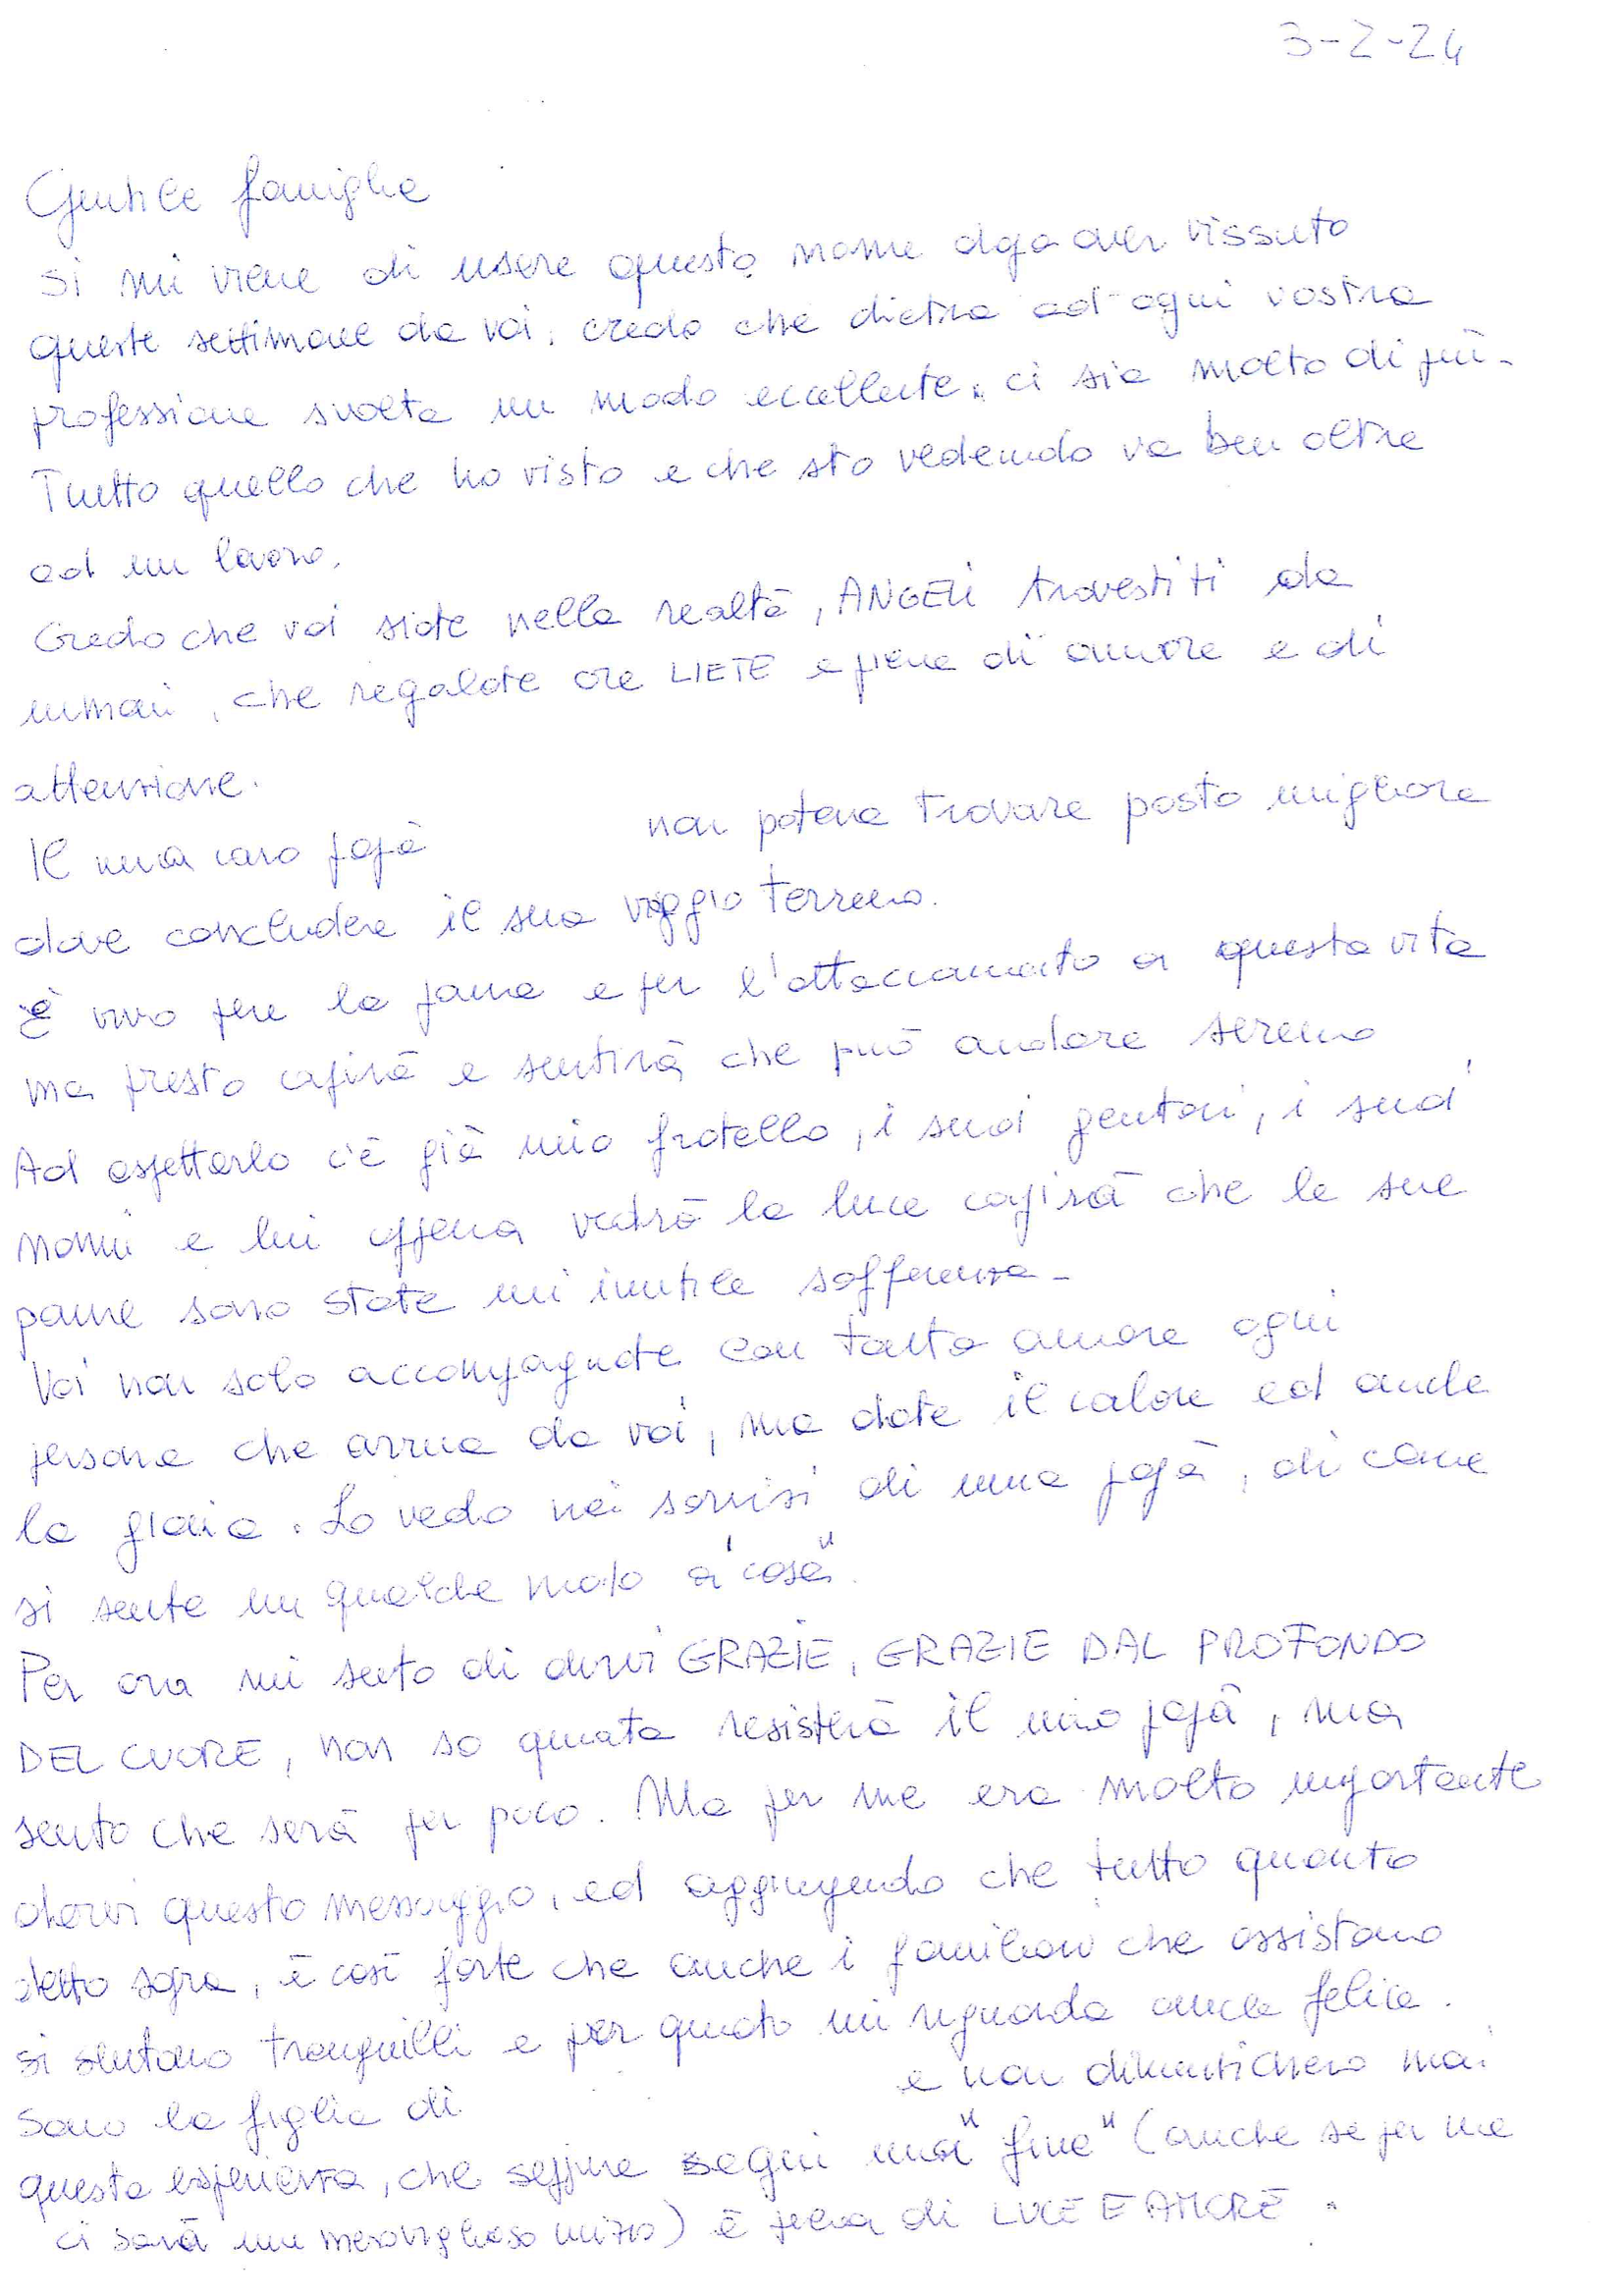 3-2-24
Gentile famiglia
Si mi viene di usare questo nome dopo aver vissuto
queste settimane da voi, credo che dietro ad ogni vostra
professione svolta in modo eccellente, ci sia molto di più-
Tutto quello che ho visto e che sto vedendo va ben oltre
ad un lavoro.
Credo che voi siate nella realtà, ANGELI travestiti da
umani, che regalate ore LIETE e piene di amore e di
attenzione.
Il mio caro papà non poteva trovare posto migliore
dove concludere il suo viaggio terreno.
È vivo per la paura e per l'attaccamento a questa vita
ma presto capirà e sentirà che può andare sereno
Ad aspettarlo c'è già mio fratello, i suoi genitori, i suoi
nonni e lui appena vedrà la luce capirà che le sue
paure sono state un'inutile sofferenza-
Voi non solo accompagnate con tanto amore ogni
persona che arriva da voi, ma date il calore ed anche
la gioia. Lo vedo nei sorrisi di mio papà, di come
si sente in qualche modo a "casa".
Per ora mi sento di dirvi GRAZIE, GRAZIE DAL PROFONDO
DEL CUORE, non so quanto resisterà il mio papà, ma
sento che sarà per poco. Ma per me era molto importante
darvi questo messaggio, ed aggiungendo che tutto quanto
detto sopra, è così forte che anche i familiari che assistono
si sentano tranquilli e per quanto mi riguarda anche felice.
Sono la figlia di e non dimenticherò mai
questa esperienza, che seppure segni una "fine" (anche se per me
ci sarà un meraviglioso inizio) è piena di LUCE E AMORE.